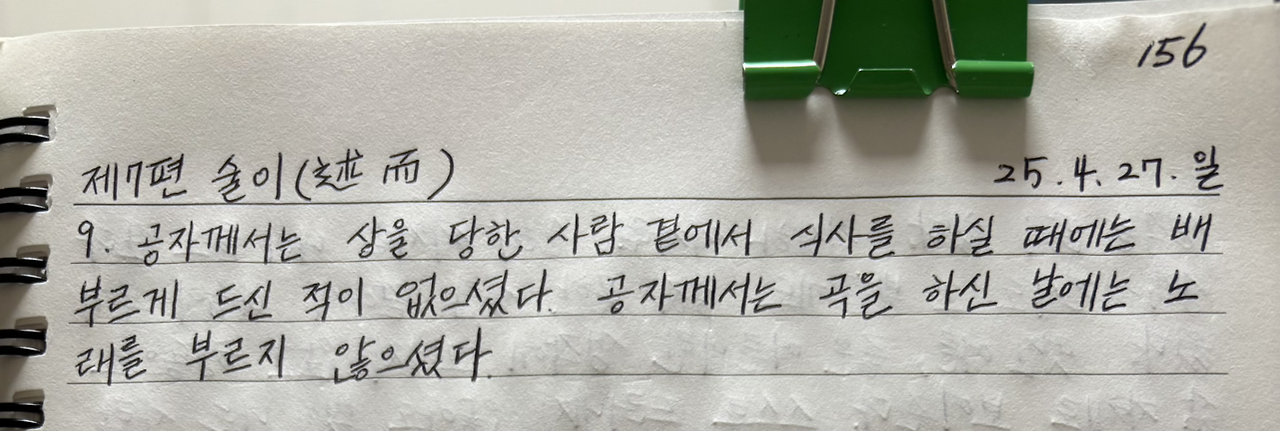 156
제7편 술이(述而) 25.4.27.일
9. 공자께서는 상을 당한 사람 곁에서 식사를 하실 때에는 배
부르게 드신 적이 없으셨다. 공자께서는 곡을 하신 날에는 노
래를 부르지 않으셨다.